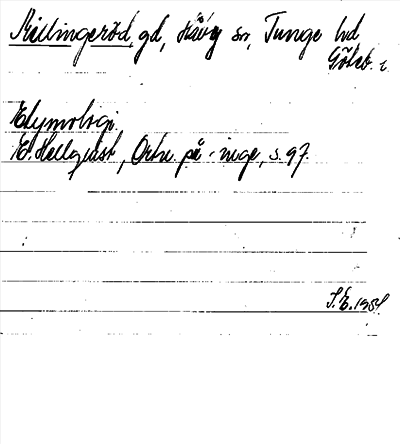 Killingeröd, gd, Håby sn, Tunge hd
Göteb. l.
Etymologi.
E. Hellquist, Ortn. på -inge, s. 97.